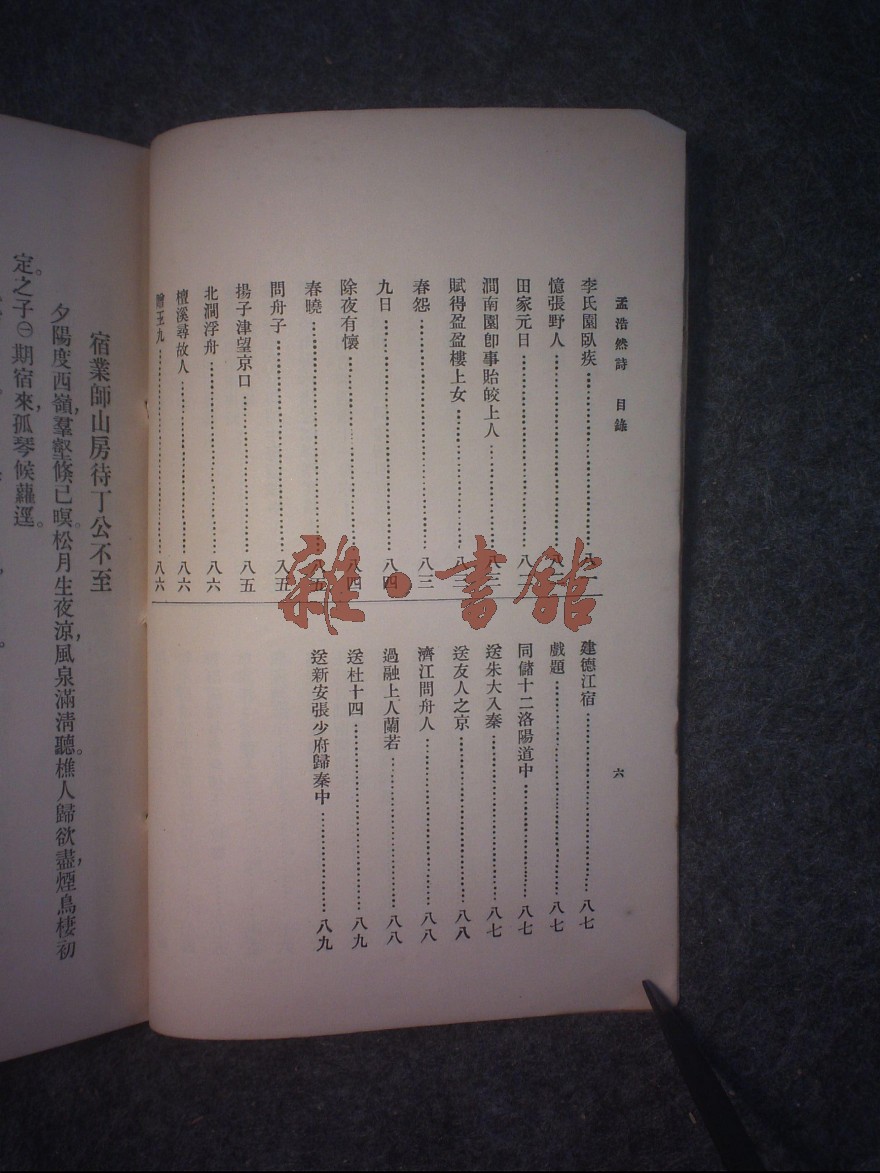 孟浩然詩 目錄
李氏園臥疾
憶張野人
田家元日
澗南園卽事貽皎上人
賦得盈盈樓上女
春怨 八三
九日 八四
除夜有懷 八四
春曉 八五
問舟子 八五
揚子津望京口 八五
北澗浮舟 八六
檀溪尋故人 八六
贈王九 八六
建德江宿 八七
戲題 八七
同儲十二洛陽道中 八七
送朱大入秦 八七
送友人之京 八八
濟江問舟人 八八
過融上人蘭若 八八
送杜十四 八九
送新安張少府歸秦中 八九
六
雜·書館
宿業師山房待丁公不至
夕陽度西嶺，羣壑倏已暝。松月生夜涼，風泉滿清聽。樵人歸欲盡，煙鳥棲初
定。之子㊀期宿來，孤琴候蘿逕。